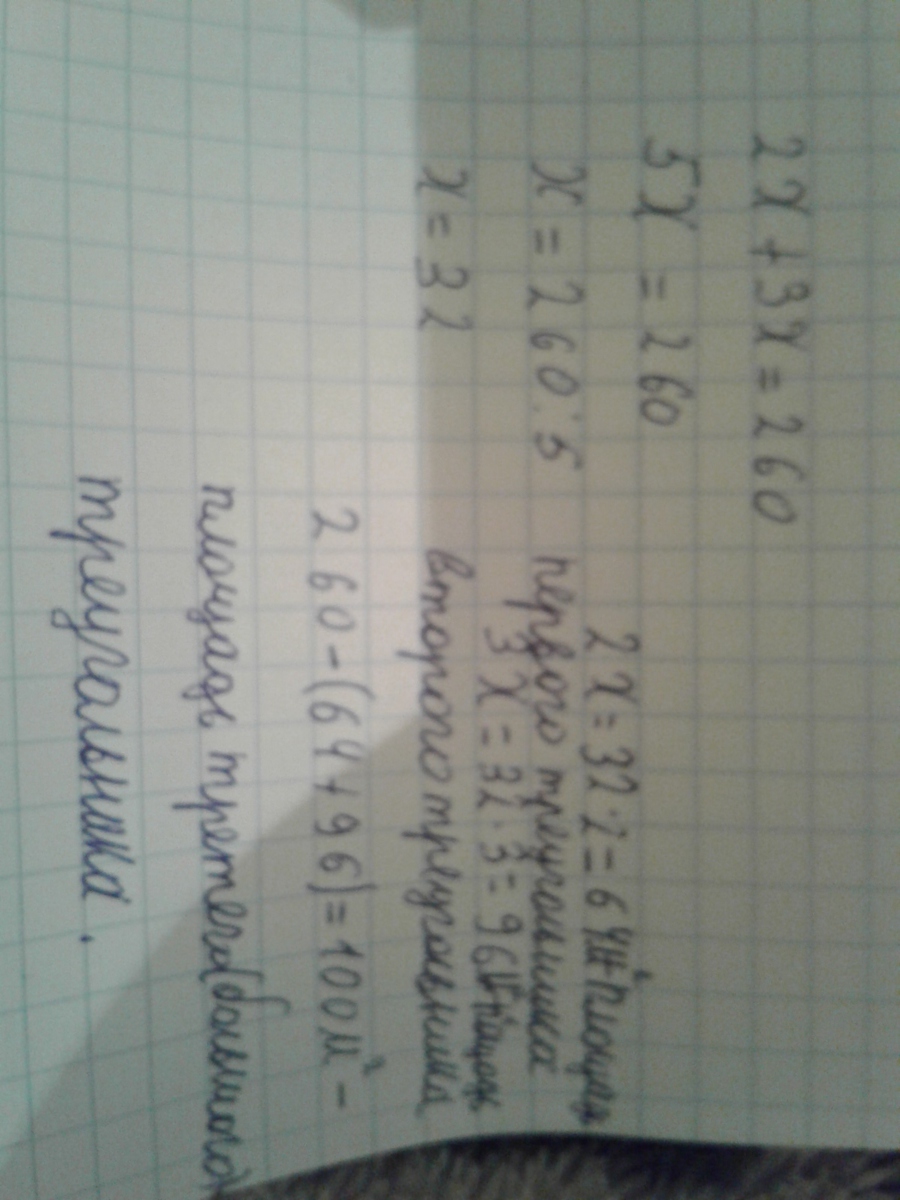 2х+3х=260
5х=260
х=260:5
х=32
2х=32·2=64м²-площадь
первого треугольника
3х=32·3=96м²-площадь
второго треугольника
260-(64+96)=100м²-
площадь третьего(большого)
треугольника.